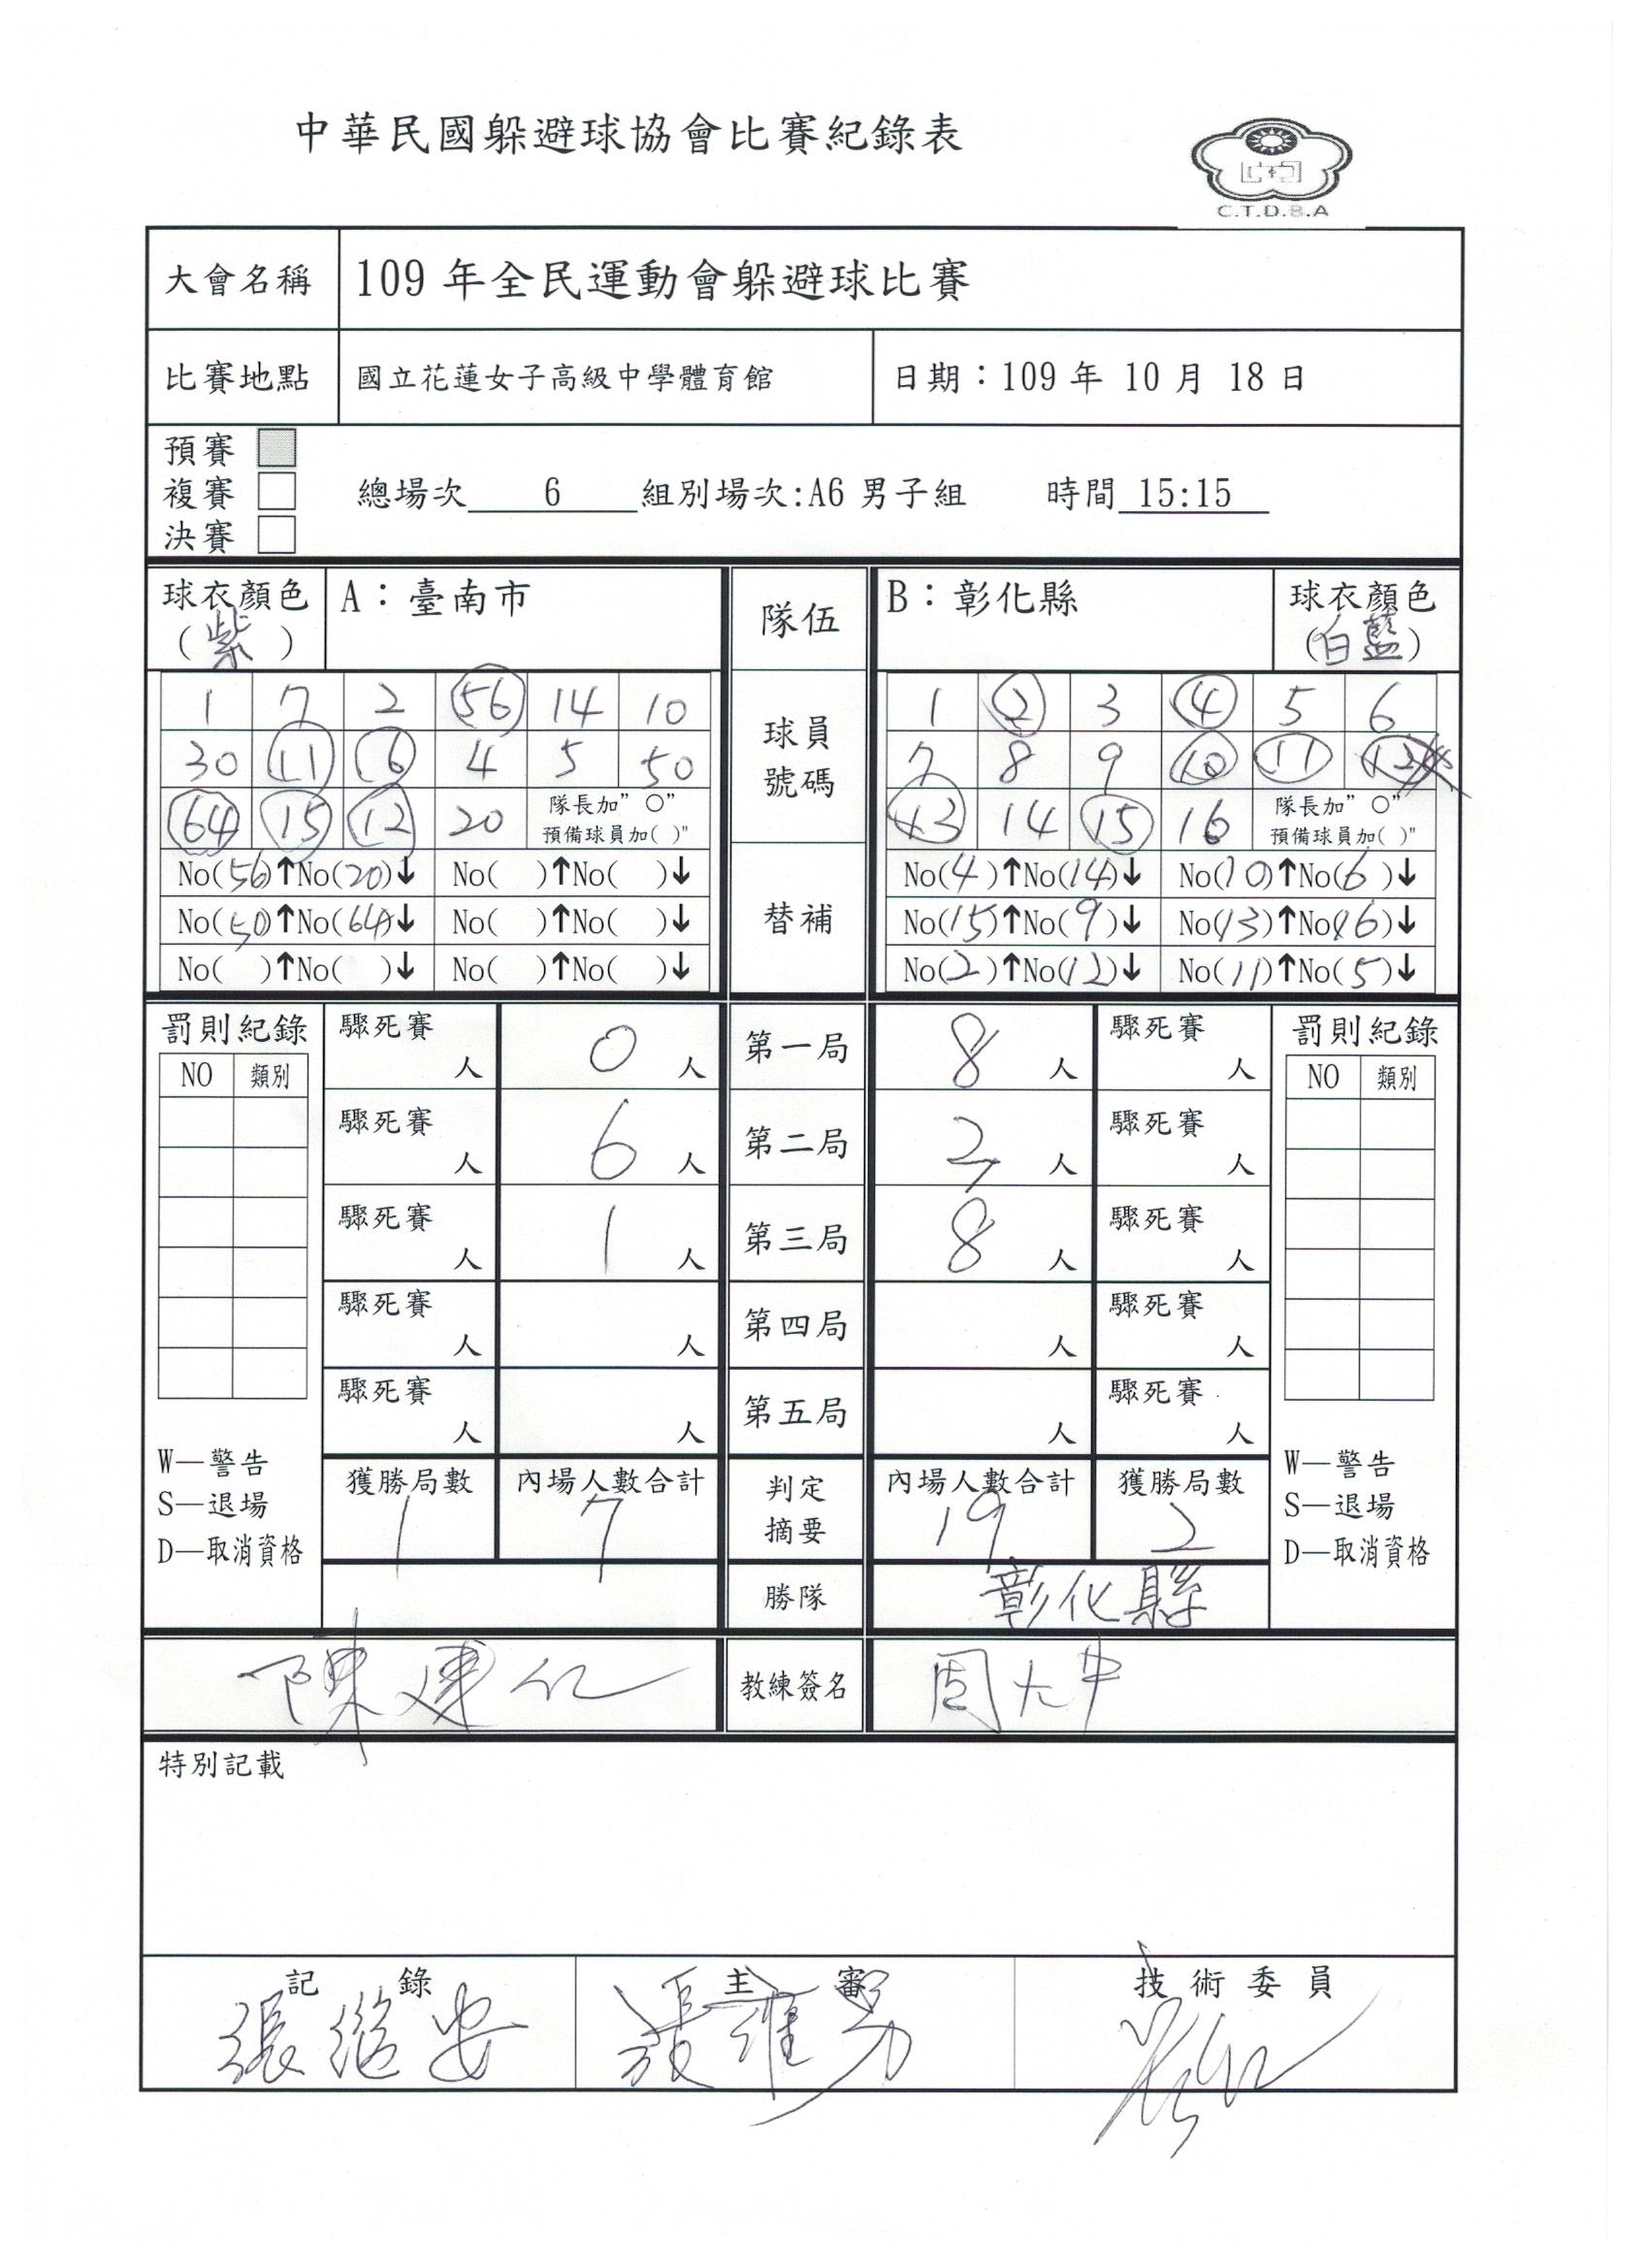 中華民國躲避球協會比賽紀錄表
C.T.D.B.A
大會名稱 109 年全民運動會躲避球比賽
比賽地點 國立花蓮女子高級中學體育館 日期：109 年 10 月 18 日
預賽
複賽 總場次 6 組別場次:A6 男子組 時間 15:15
決賽
球衣顏色 A：臺南市 隊伍 B：彰化縣 球衣顏色
(紫) (白藍)
1 7 2 56 14 10 球員 1 2 3 4 5 6
30 11 6 4 5 50 號碼 7 8 9 10 11 12
64 15 12 20 隊長加"○" 13 14 15 16 隊長加"○"
預備球員加( )" 預備球員加( )"
No(56)↑No(20)↓ No( )↑No( )↓ 替補 No(4)↑No(14)↓ No(10)↑No(6)↓
No(50)↑No(64)↓ No( )↑No( )↓ No(15)↑No(9)↓ No(13)↑No(16)↓
No( )↑No( )↓ No( )↑No( )↓ No(2)↑No(12)↓ No(11)↑No(5)↓
罰則紀錄 驟死賽 人 0 人 第一局 8 人 驟死賽 人 罰則紀錄
NO 類別 NO 類別
驟死賽 人 6 人 第二局 2 人 驟死賽 人
驟死賽 人 1 人 第三局 8 人 驟死賽 人
驟死賽 人 人 第四局 人 驟死賽 人
驟死賽 人 人 第五局 人 驟死賽 人
W—警告 W—警告
S—退場 S—退場
D—取消資格 D—取消資格
獲勝局數 內場人數合計 判定摘要 內場人數合計 獲勝局數
1 7 19 2
勝隊 彰化縣
陳建 教練簽名 周大中
特別記載
記錄 主審 技術委員
張繼安 張維男